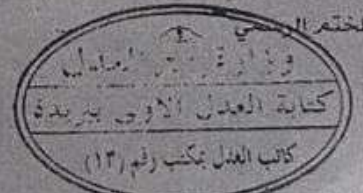 الختم الرسمي
وزارة العدل
كتابة العدل الأولى ببريدة
كاتب العدل بمكتب رقم (١٣)